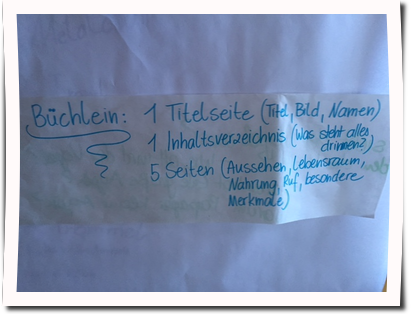 Büchlein: 1 Titelseite (Titel, Bild, Namen)
1 Inhaltsverzeichnis (Was steht alles
drinnen?)
5 Seiten (Aussehen, Lebensraum,
Nahrung, Ruf, besondere
Merkmale)